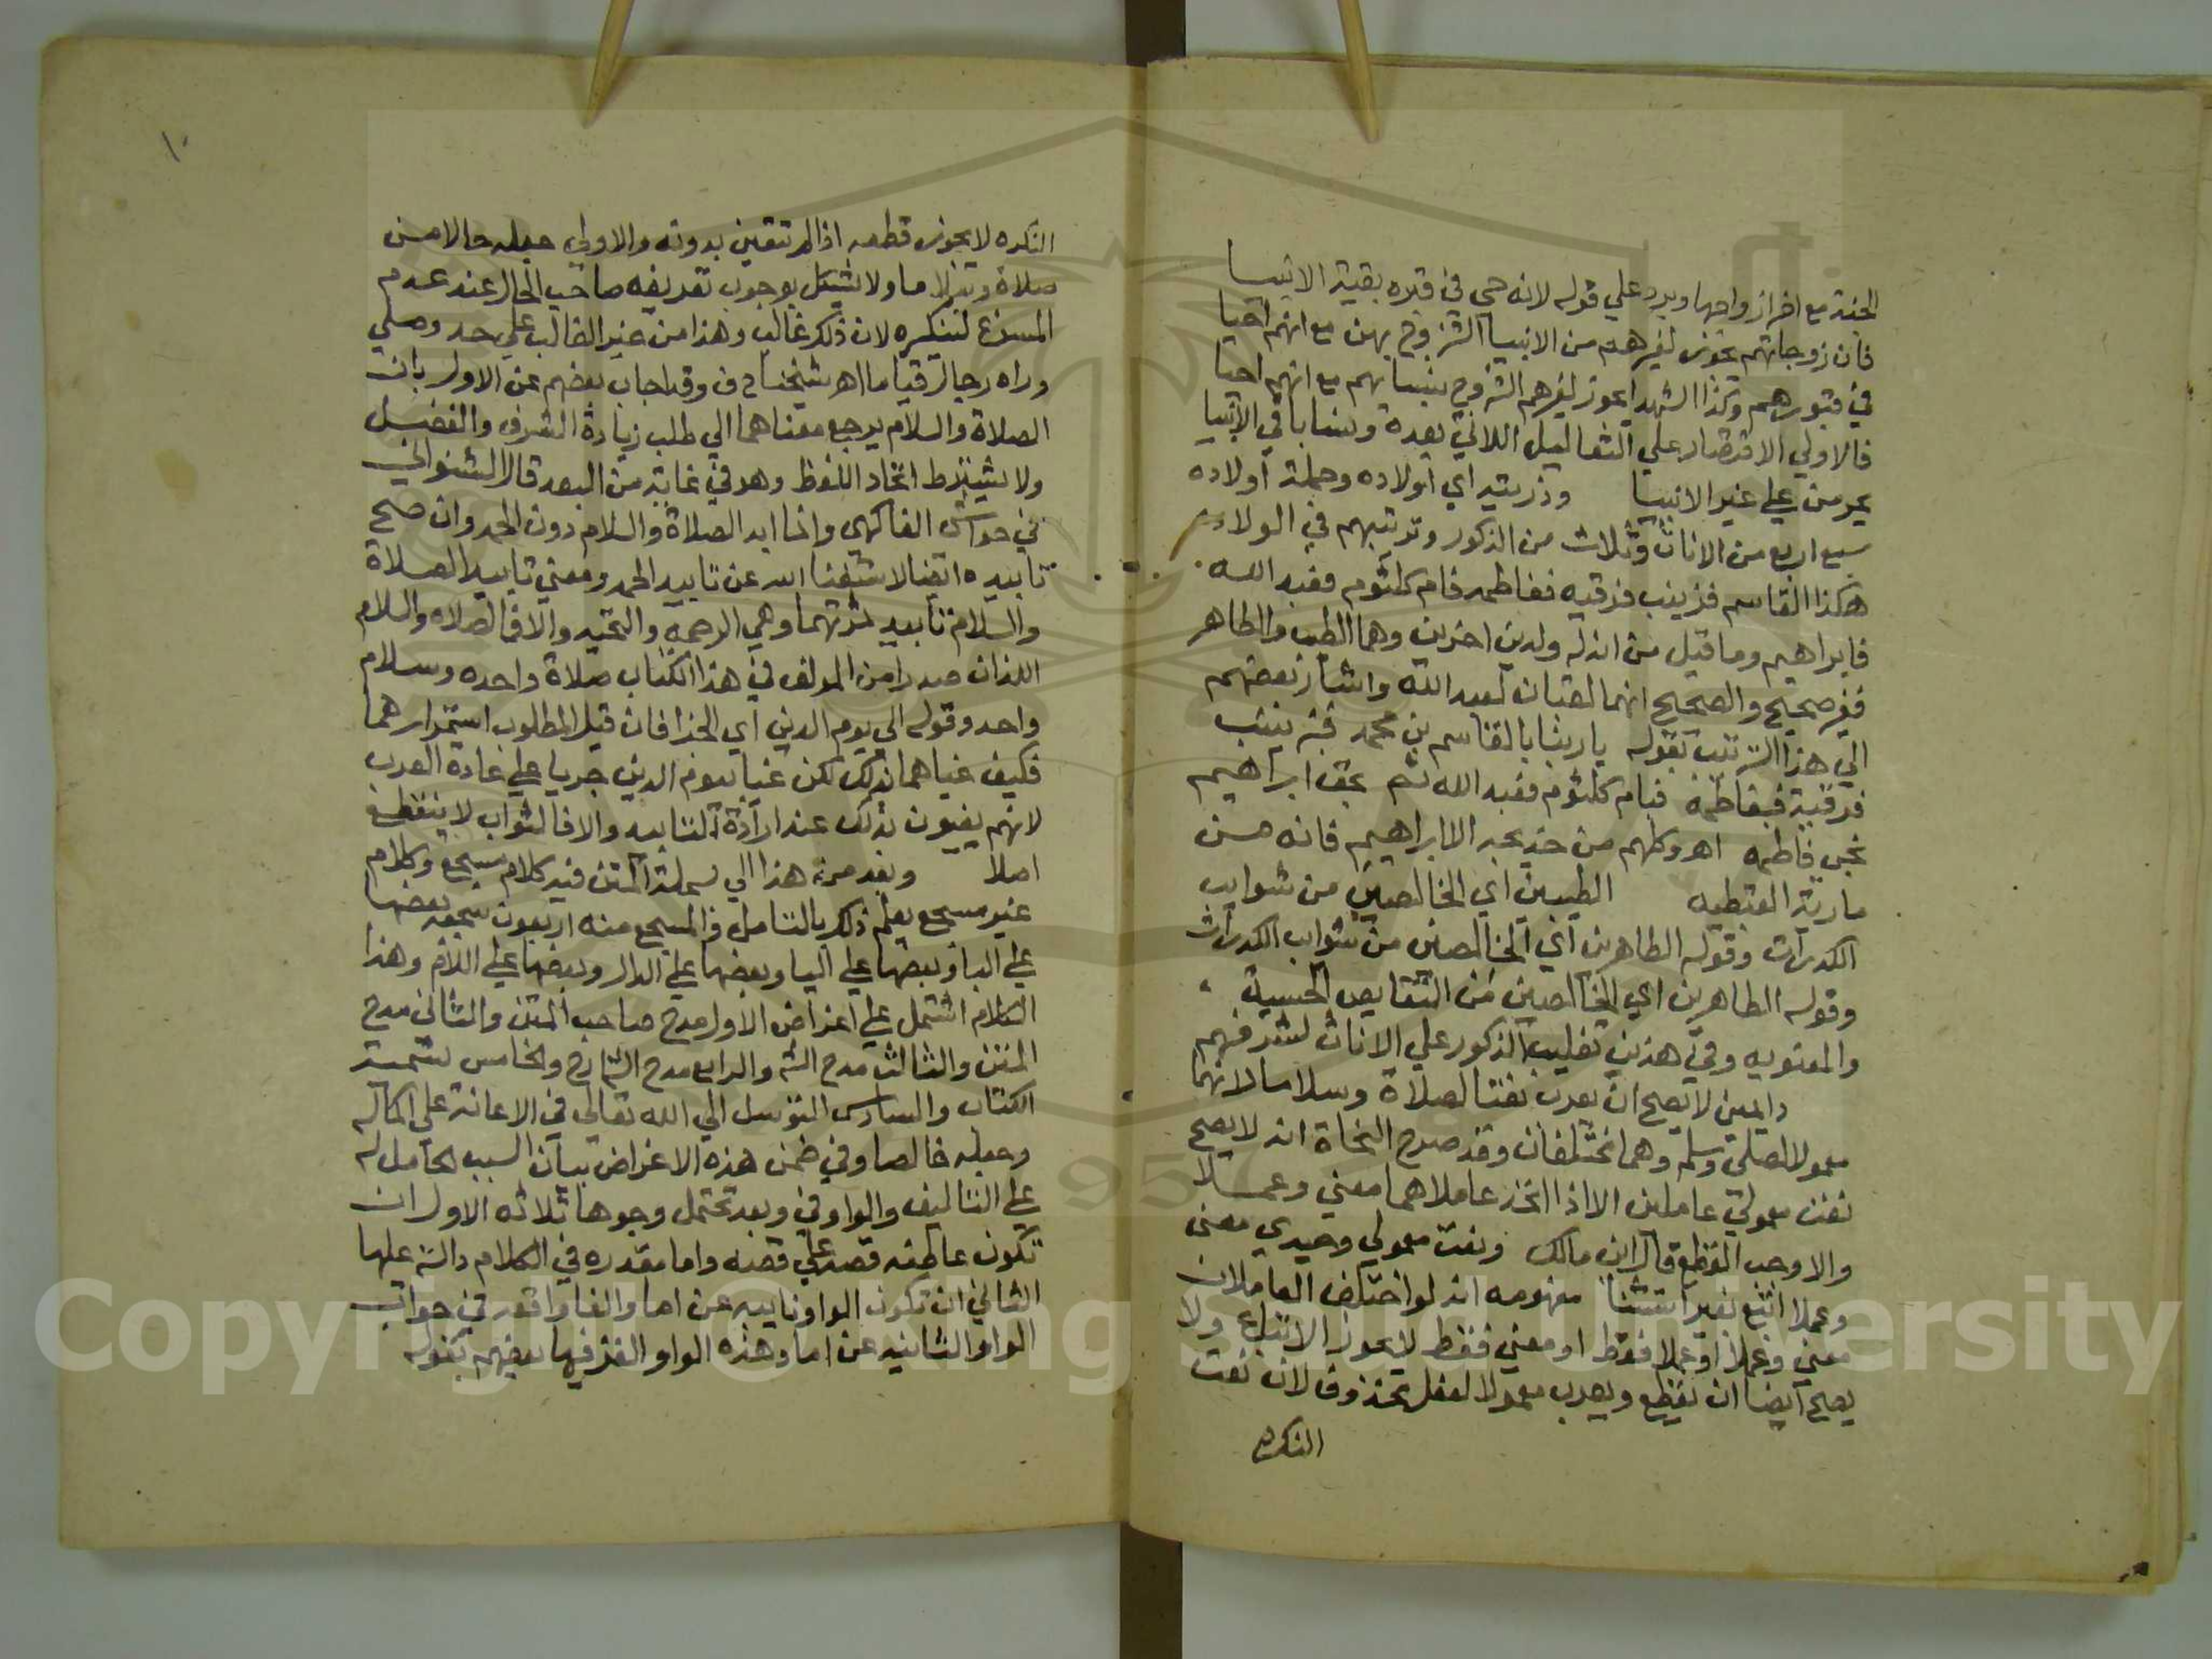 الجنة مع اخر ازواجها ويرد علي قوله لانه حي في قبره بقية الانبيا
فان زوجاتهم يجوز لغيرهم من الانبيا التزوج بهن مع انهم احيا
في قبورهم وكذا الشهدا يجوز لغيرهم التزوج بنسايهم مع انهم احيا
فالاولي الاقتصار علي التعاليل اللاتي بعده ونسا باقي الانبيا
يحرمن علي غير الانبيا وذريته اي اولاده وجملة اولاده
سبع اربع من الاناث وثلاث من الذكور وترتيبهم في الولادة
هكذا القاسم فزينب فرقيه ففاطمه فام كلثوم فعبد الله
فابراهيم وما قيل من ان له ولدين اخرين وهما الطيب والطاهر
فغير صحيح والصحيح انهما لقبان لعبد الله واشار بعضهم
الي هذا الترتيب بقوله يا ربنا بالقاسم بن محمد فبزينب
فرقية فبفاطمة فبام كلثوم فعبد الله ثم بحق ابراهيم
نجي فاطمه اهـ وكلهم من خديجه الا ابراهيم فانه من
مارية القبطيه الطيبين اي الخالصين من شوايب
الكدرات وقوله الطاهرين اي الخالصين من شوايب الكدرات
وقوله الطاهرين اي الخالصين من النقايص الحسية
والمعنويه وفي هذين تغليب الذكور علي الاناث لشرفهم
دايمين لا يصح ان يعرب نعتا لصلاة وسلاما لانهما
معمولا لصلي وسلم وهما مختلفان وقد صرح النحاة انه لا يصح
نعت معمولي عاملين الا اذا اتحد عاملاهما معني وعملا
والا وجب القطع قال ابن مالك ونعت معمولي وحيدي معني
وعملا اتبع بغير استثنا مفهومه انه لو اختلف العاملان
معني وعملا او عملا فقط او معني فقط لا يجوز الاتباع ولا
يصح ايضا ان يقطع ويعرب معمولا لفعل محذوف لان نعت
النكره
١٠
النكره لا يجوز قطعه اذا لم تتعين بدونه والاولي جعله حالا من
صلاة وسلاما ولا يشكل بوجوب تعريف صاحب الحال عند عدم
المسوغ لتنكيره لان ذلك غالب وهذا من غير الغالب علي حد وصلي
وراه رجال قياما اهـ شيخنا ح ف وقد اجاب بعضهم عن الاول بان
الصلاة والسلام يرجع معناهما الي طلب زيادة الشرف والفضل
ولا يشترط اتحاد اللفظ وهو في غاية من البعد قال الشنواني
في حواشي الفاكهي وانما ابد الصلاة والسلام دون الحمد وان صح
تابيده ايضا لاستغنا الله عن تابيد الحمد ومعني تابيد الصلاة
والسلام تابيد ثمرتهما وهي الرحمه والتحيه والا فالصلاه والسلام
اللذان صدرا من المولف في هذا الكتاب صلاة واحده وسلام
واحد وقوله الي يوم الدين اي الجزا فان قيل المطلوب استمرارهما
فكيف غياهما بذلك لكن غيا بيوم الدين جريا علي عادة العرب
لانهم يغيون بذلك عند ارادة التابيد والا فالثواب لا ينقطع
اصلا وبعد من هذا الي بسملة المتن فيه كلام مسجع وكلام
غير مسجع يعلم ذلك بالتامل فالمسجع منه اربعون سجعه بعضها
علي البا وبعضها علي اليا وبعضها علي الدال وبعضها علي اللام وهذا
الكلام اشتمل علي اغراض الاول مدح صاحب المتن والثاني مدح
المتن والثالث مدح الشـ والرابع مدح الشارح والخامس تسمية
الكتاب والسادس التوسل الي الله تعالي في الاعانة علي اكماله
وجعله خالصا وفي ضمن هذه الاغراض بيان السبب الحامل له
علي التاليف والواو في وبعد تحتمل وجوها ثلاثه الاول ان
تكون عاطفه قصه علي قصه واما مقدره في الكلام دالة عليها
الثاني ان تكون الواو نايبه عن اما والفا واقعه في جواب
الواو النايبه عن اما وهذه الواو الغز فيها بعضهم بقوله